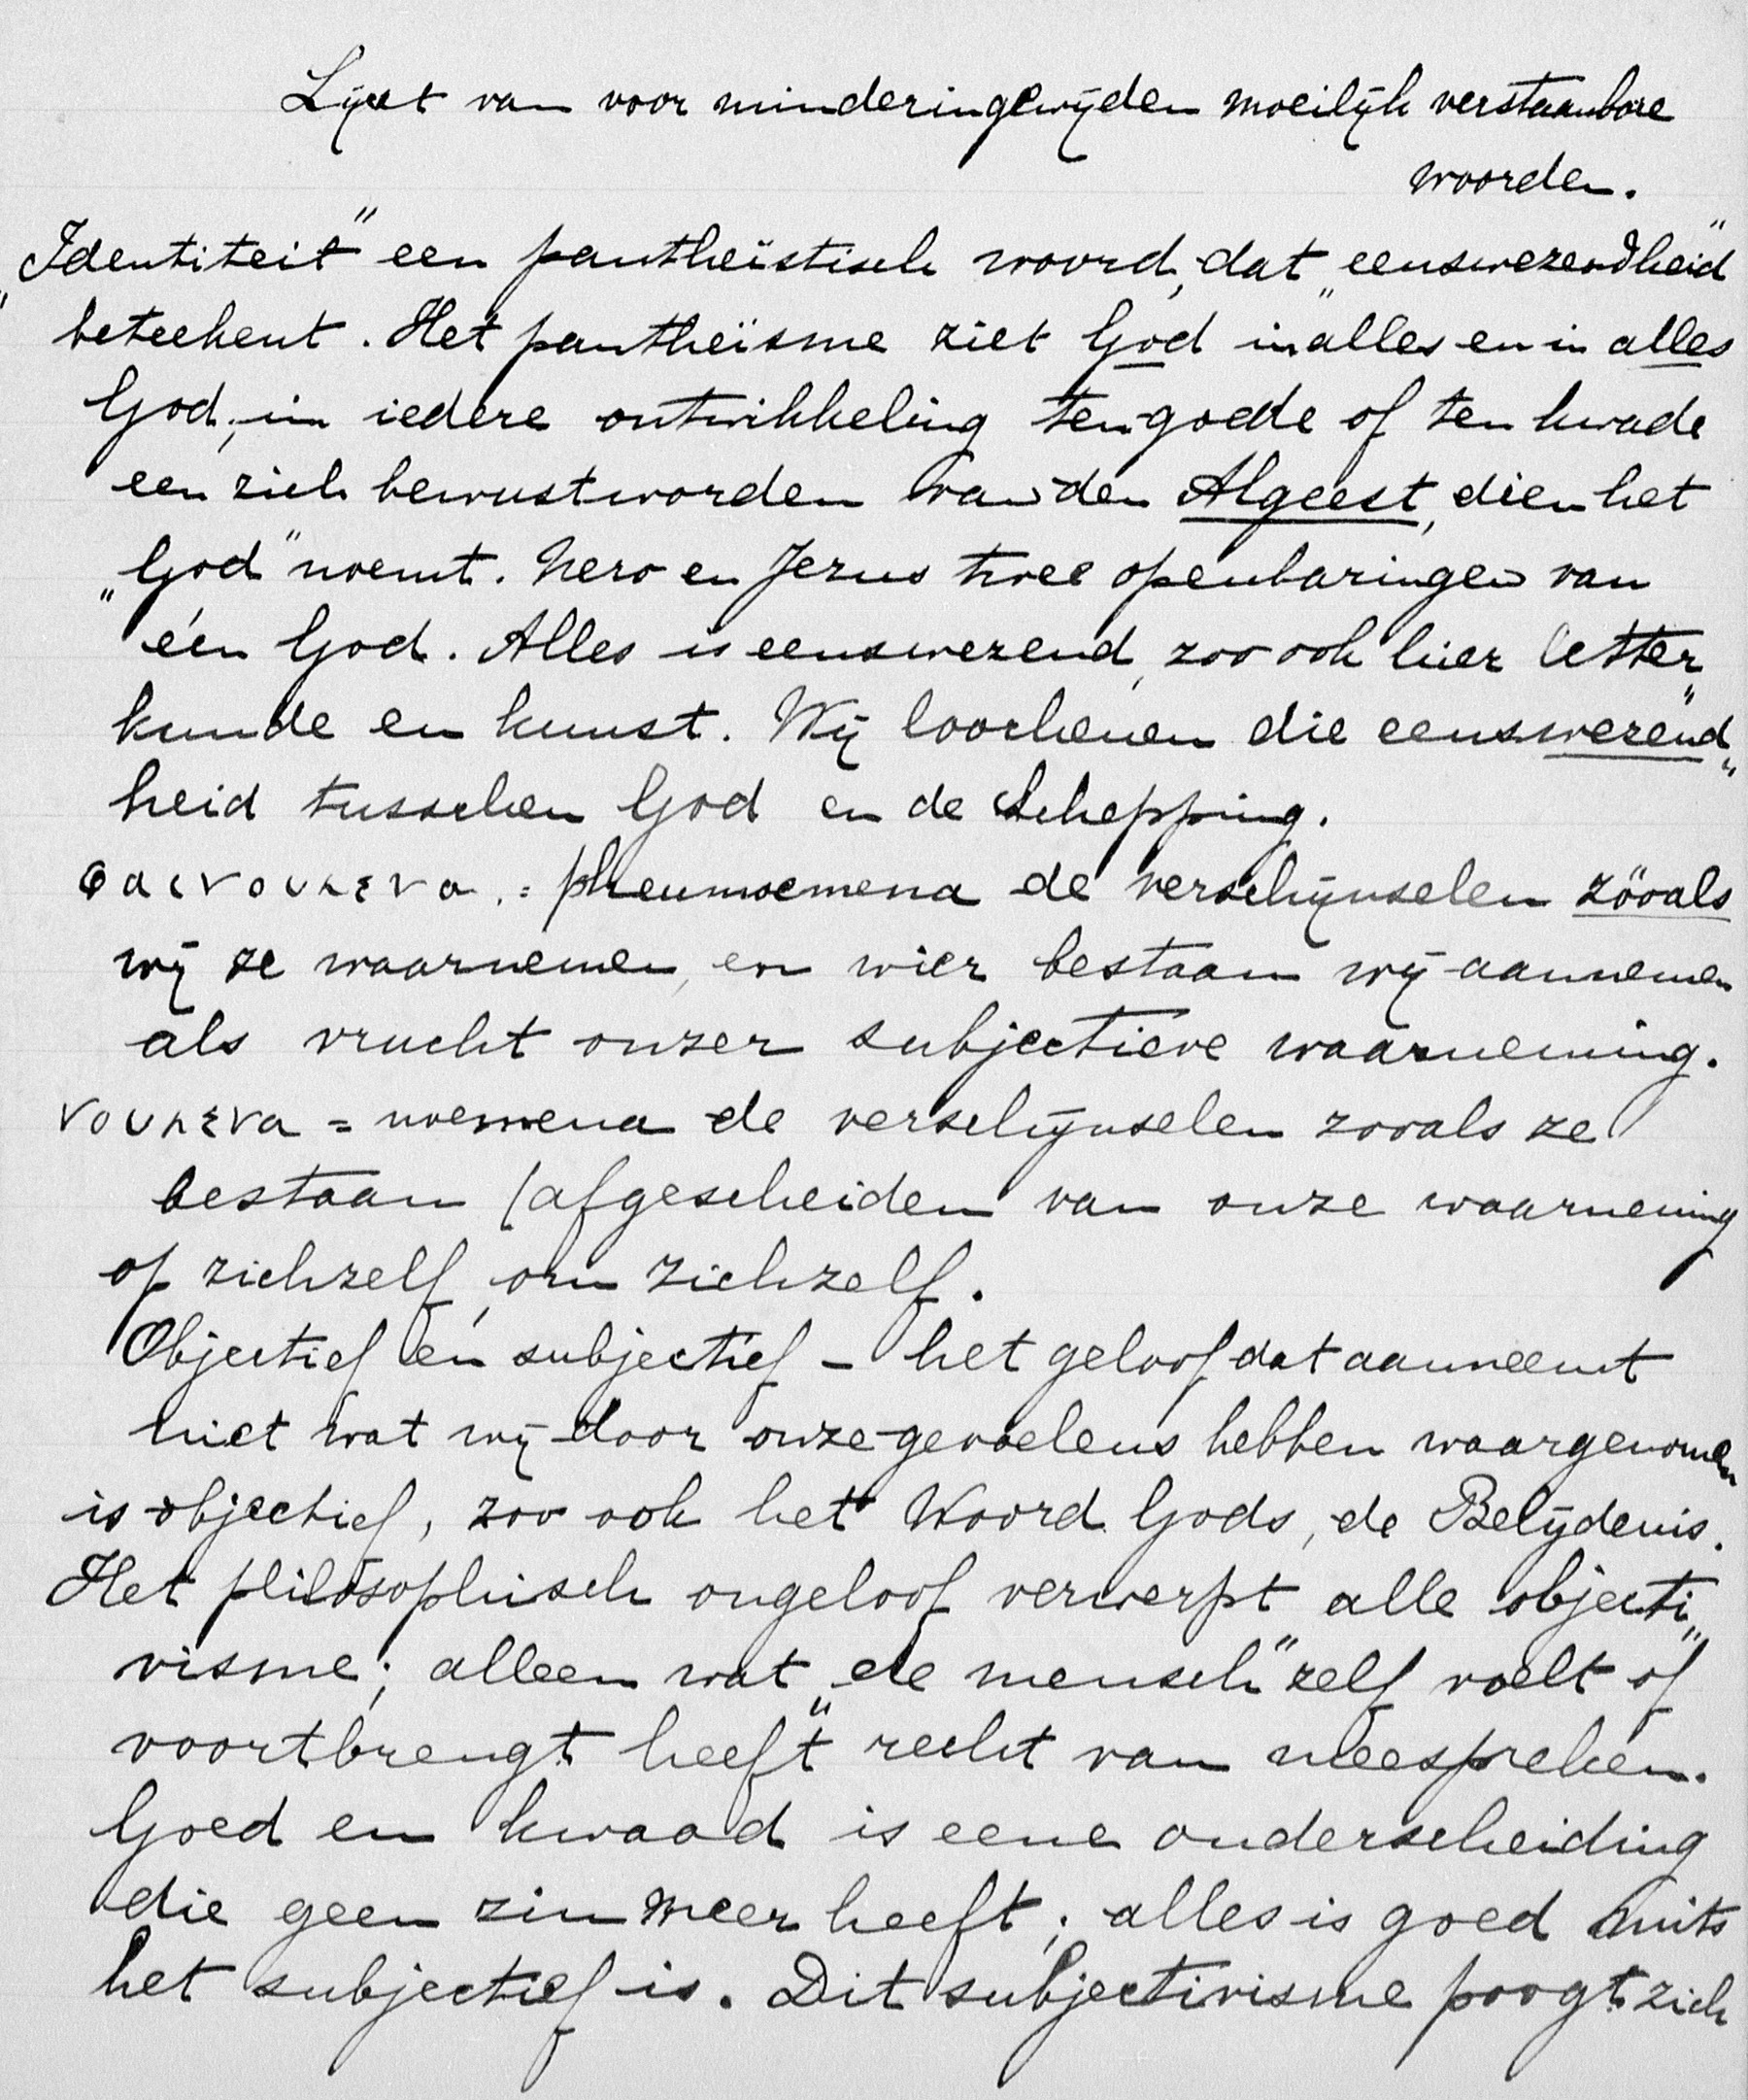 Lijst van voor minderingewijden moeilijk verstaanbare
woorden.
„Identiteit" een pantheïstisch woord, dat „eenswezendheid"
beteekent. Het pantheïsme ziet God in alles en in alles
God, in iedere ontwikkeling ten goede of ten kwade
een zich bewustworden van den Algeest, dien het
„God" noemt. Nero en Jezus twee openbaringen van
één God. Alles is eenswezend, zoo ook hier letter„
kunde en kunst. Wij loochenen die eenswezend„
heid tusschen God en de Schepping.
φαινουμενα = pheunoemena de verschijnselen zóoals
wij ze waarnemen, en wier bestaan wij aannemen
als vrucht onzer subjectieve waarneming.
νουμενα = noemena de verschijnselen zooals ze
bestaan (afgescheiden van onze waarneming
op zichzelf, om zichzelf.
Objectief en subjectief – het geloof dat aanneemt
niet wat wij door onze gevoelens hebben waargenomen
is objectief, zoo ook het Woord Gods, de Belijdenis.
Het philosophisch ongeloof verwerpt alle objecti„
visme; alleen wat „de mensch" zelf voelt of
voortbrengt heeft recht van meespreken.
Goed en kwaad is eene onderscheiding
die geen zin meer heeft; alles is goed mits
het subjectief is. Dit subjectivisme poogt zich